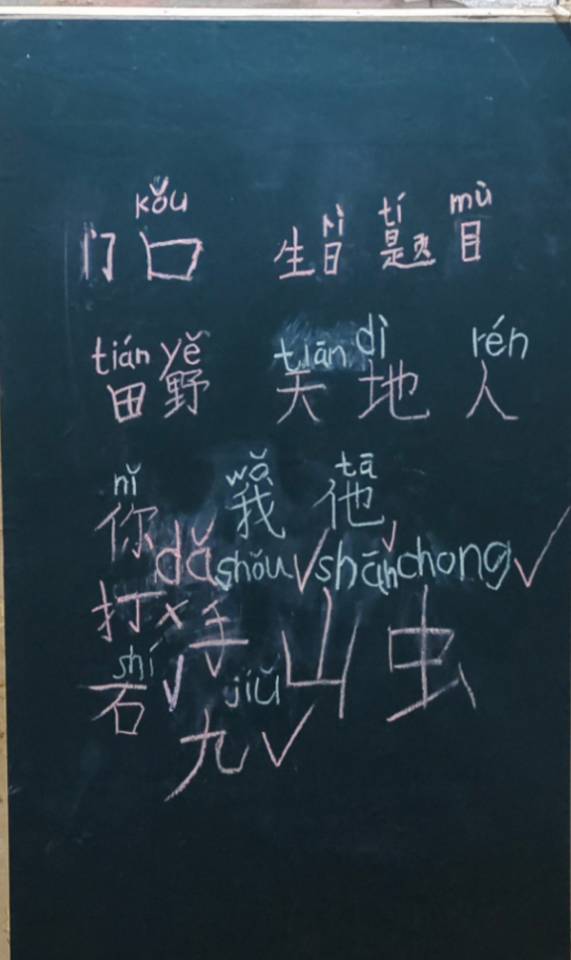 kǒu rì tí mù
门口 生日 题目
tián yě tiān dì rén
田野 天 地 人
nǐ wǒ tā
你 我 他
dǎ shǒu √ shān chong √
打 × 手 山 虫
shí jiǔ
石 √
九 √